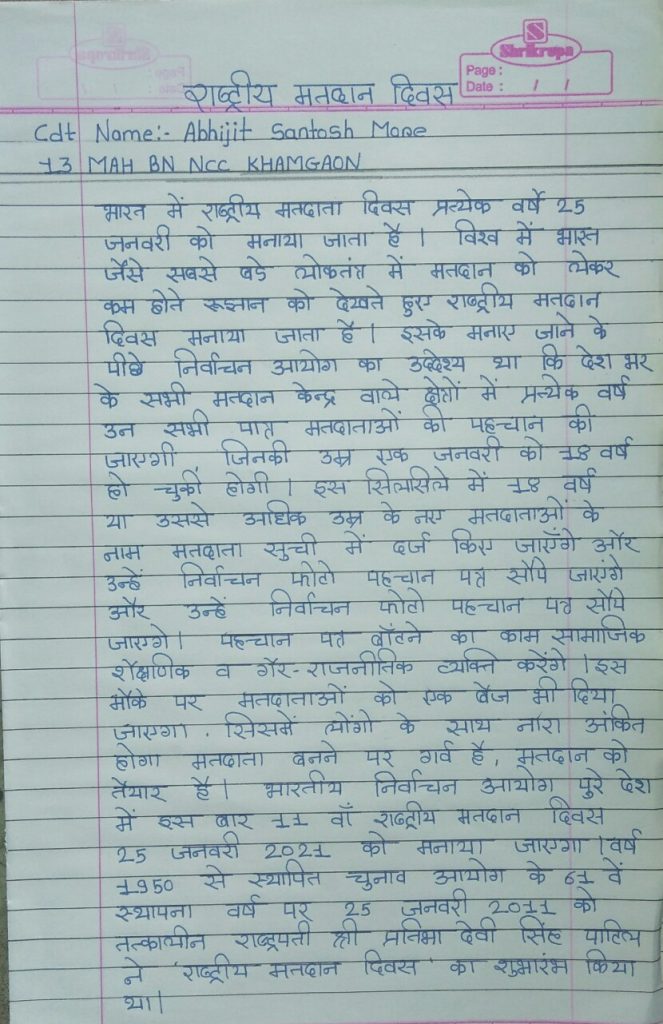 Shrikrupa
Page :
Date : / /
राष्ट्रीय मतदान दिवस
Cdt Name:- Abhijit Santosh More
13 MAH BN NCC KHAMGAON
भारत में राष्ट्रीय मतदाता दिवस प्रत्येक वर्ष 25
जनवरी को मनाया जाता है। विश्व में भारत
जैसे सबसे बडे लोकतंत्र में मतदान को लेकर
कम होते रूझान को देखते हुए राष्ट्रीय मतदान
दिवस मनाया जाता है। इसके मनाए जाने के
पीछे निर्वाचन आयोग का उद्देश्य था कि देश भर
के सभी मतदान केन्द्र वाले क्षेत्रों में प्रत्येक वर्ष
उन सभी पात्र मतदाताओं की पहचान की
जाएगी, जिनकी उम्र एक जनवरी को 18 वर्ष
हो चुकी होगी। इस सिलसिले में 18 वर्ष
या उससे अधिक उम्र के नए मतदाताओं के
नाम मतदाता सुची में दर्ज किए जाएँगे और
उन्हें निर्वाचन फोटो पहचान पत्र सौपे जाएंगे
और उन्हें निर्वाचन फोटो पहचान पत्र सौपे
जाएगे। पहचान पत्र बाँटने का काम सामाजिक
शैक्षणिक व गैर-राजनीतिक व्यक्ति करेंगे। इस
मौके पर मतदाताओं को एक बैज भी दिया
जाएगा. सिसमें लोंगो के साथ नारा अंकित
होगा मतदाता बनने पर गर्व है, मतदान को
तैयार है। भारतीय निर्वाचन आयोग पुरे देश
में इस बार 11 वाँ राष्ट्रीय मतदान दिवस
25 जनवरी 2021 को मनाया जाएगा। वर्ष
1950 से स्थापित चुनाव आयोग के 61 वें
स्थापना वर्ष पर 25 जनवरी 2011 को
तत्कालीन राष्ट्रपती श्री प्रतिभा देवी सिंह पाटिल
ने 'राष्ट्रीय मतदान दिवस' का शुभारंभ किया
था।